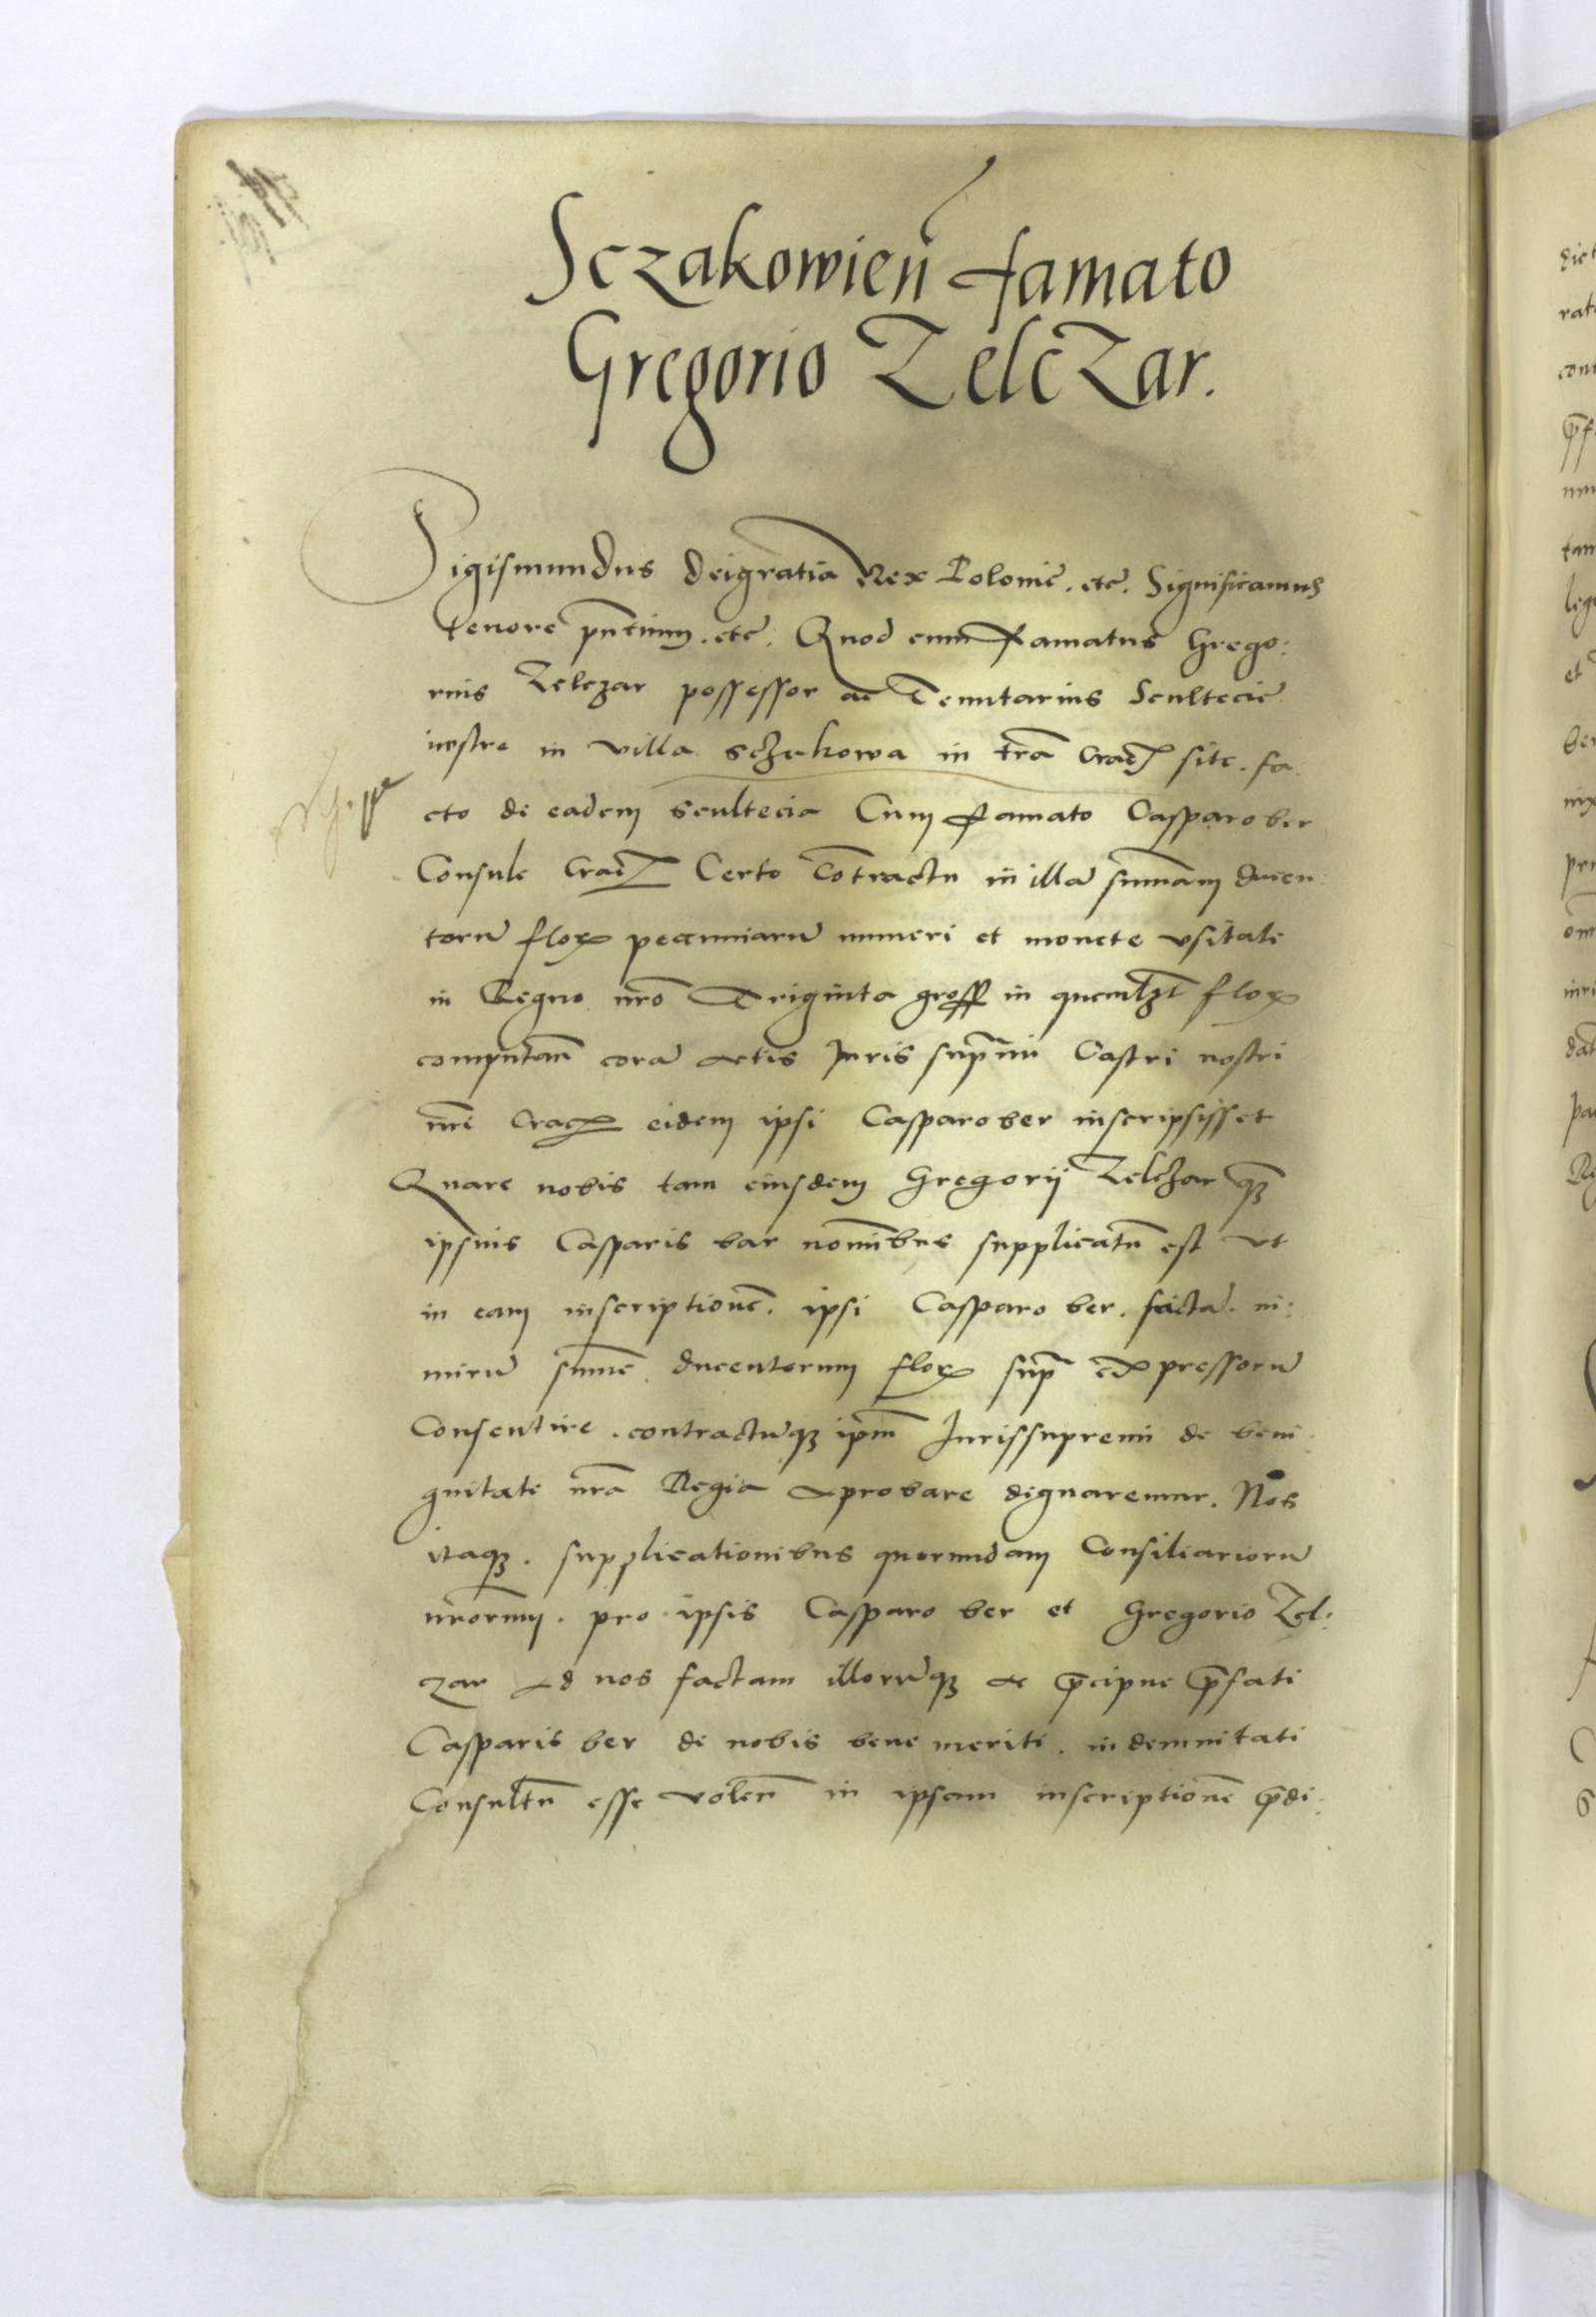 Sczakowien̄ famato
Gregorio ZelcZar.
Sigismundus Deigratia Rex Polonie. etc. Significamus
tenore pn̄tium. etc. Quod cum famatus Grego:
rius Zelczar possessor ac Tenutarius Scultecie
nostre in villa sczakowa in trā Crac̄ site. fa:
cto de eadem scultecia Cum famato Casparo ber
Consule Crac̄ Certo Cōtractu in illa sum̄am ducen:
torū floꝝ pecuniarū numeri et monete vsitate
in Regno nrō Triginta gross̄ in quemlꝫt floꝝ
computan̄ corā actis Juris sup̄mi Castri nostri
nrī Cracꝝ eidem ipsi Casparo ber inscripsisset
Quare nobis tam eiusdem Gregorij Zelczar qꝫ
ipsius Casparis bar nom̄ibus supplicatū est vt
in eam inscriptionē. ipsi Casparo ber. factā. ni:
mirū sum̄e ducentorum floꝝ supͣ expressorū
Consentire. contractūqꝫ ipm̄ Jurissupremi de beni:
gnitate nrā Regia aprobare dignaremur. Nos
itaqꝫ. supplicationibus quorundam Consiliariorū
nrōrum. pro ipsis Casparo ber et Gregorio Zel:
zar ad nos factam illorūqꝫ ac p̄cipue p̄fati
Casparis ber de nobis bene meriti. indemnitati
Consultū esse volen̄ in ipsam inscriptionē p̄di: